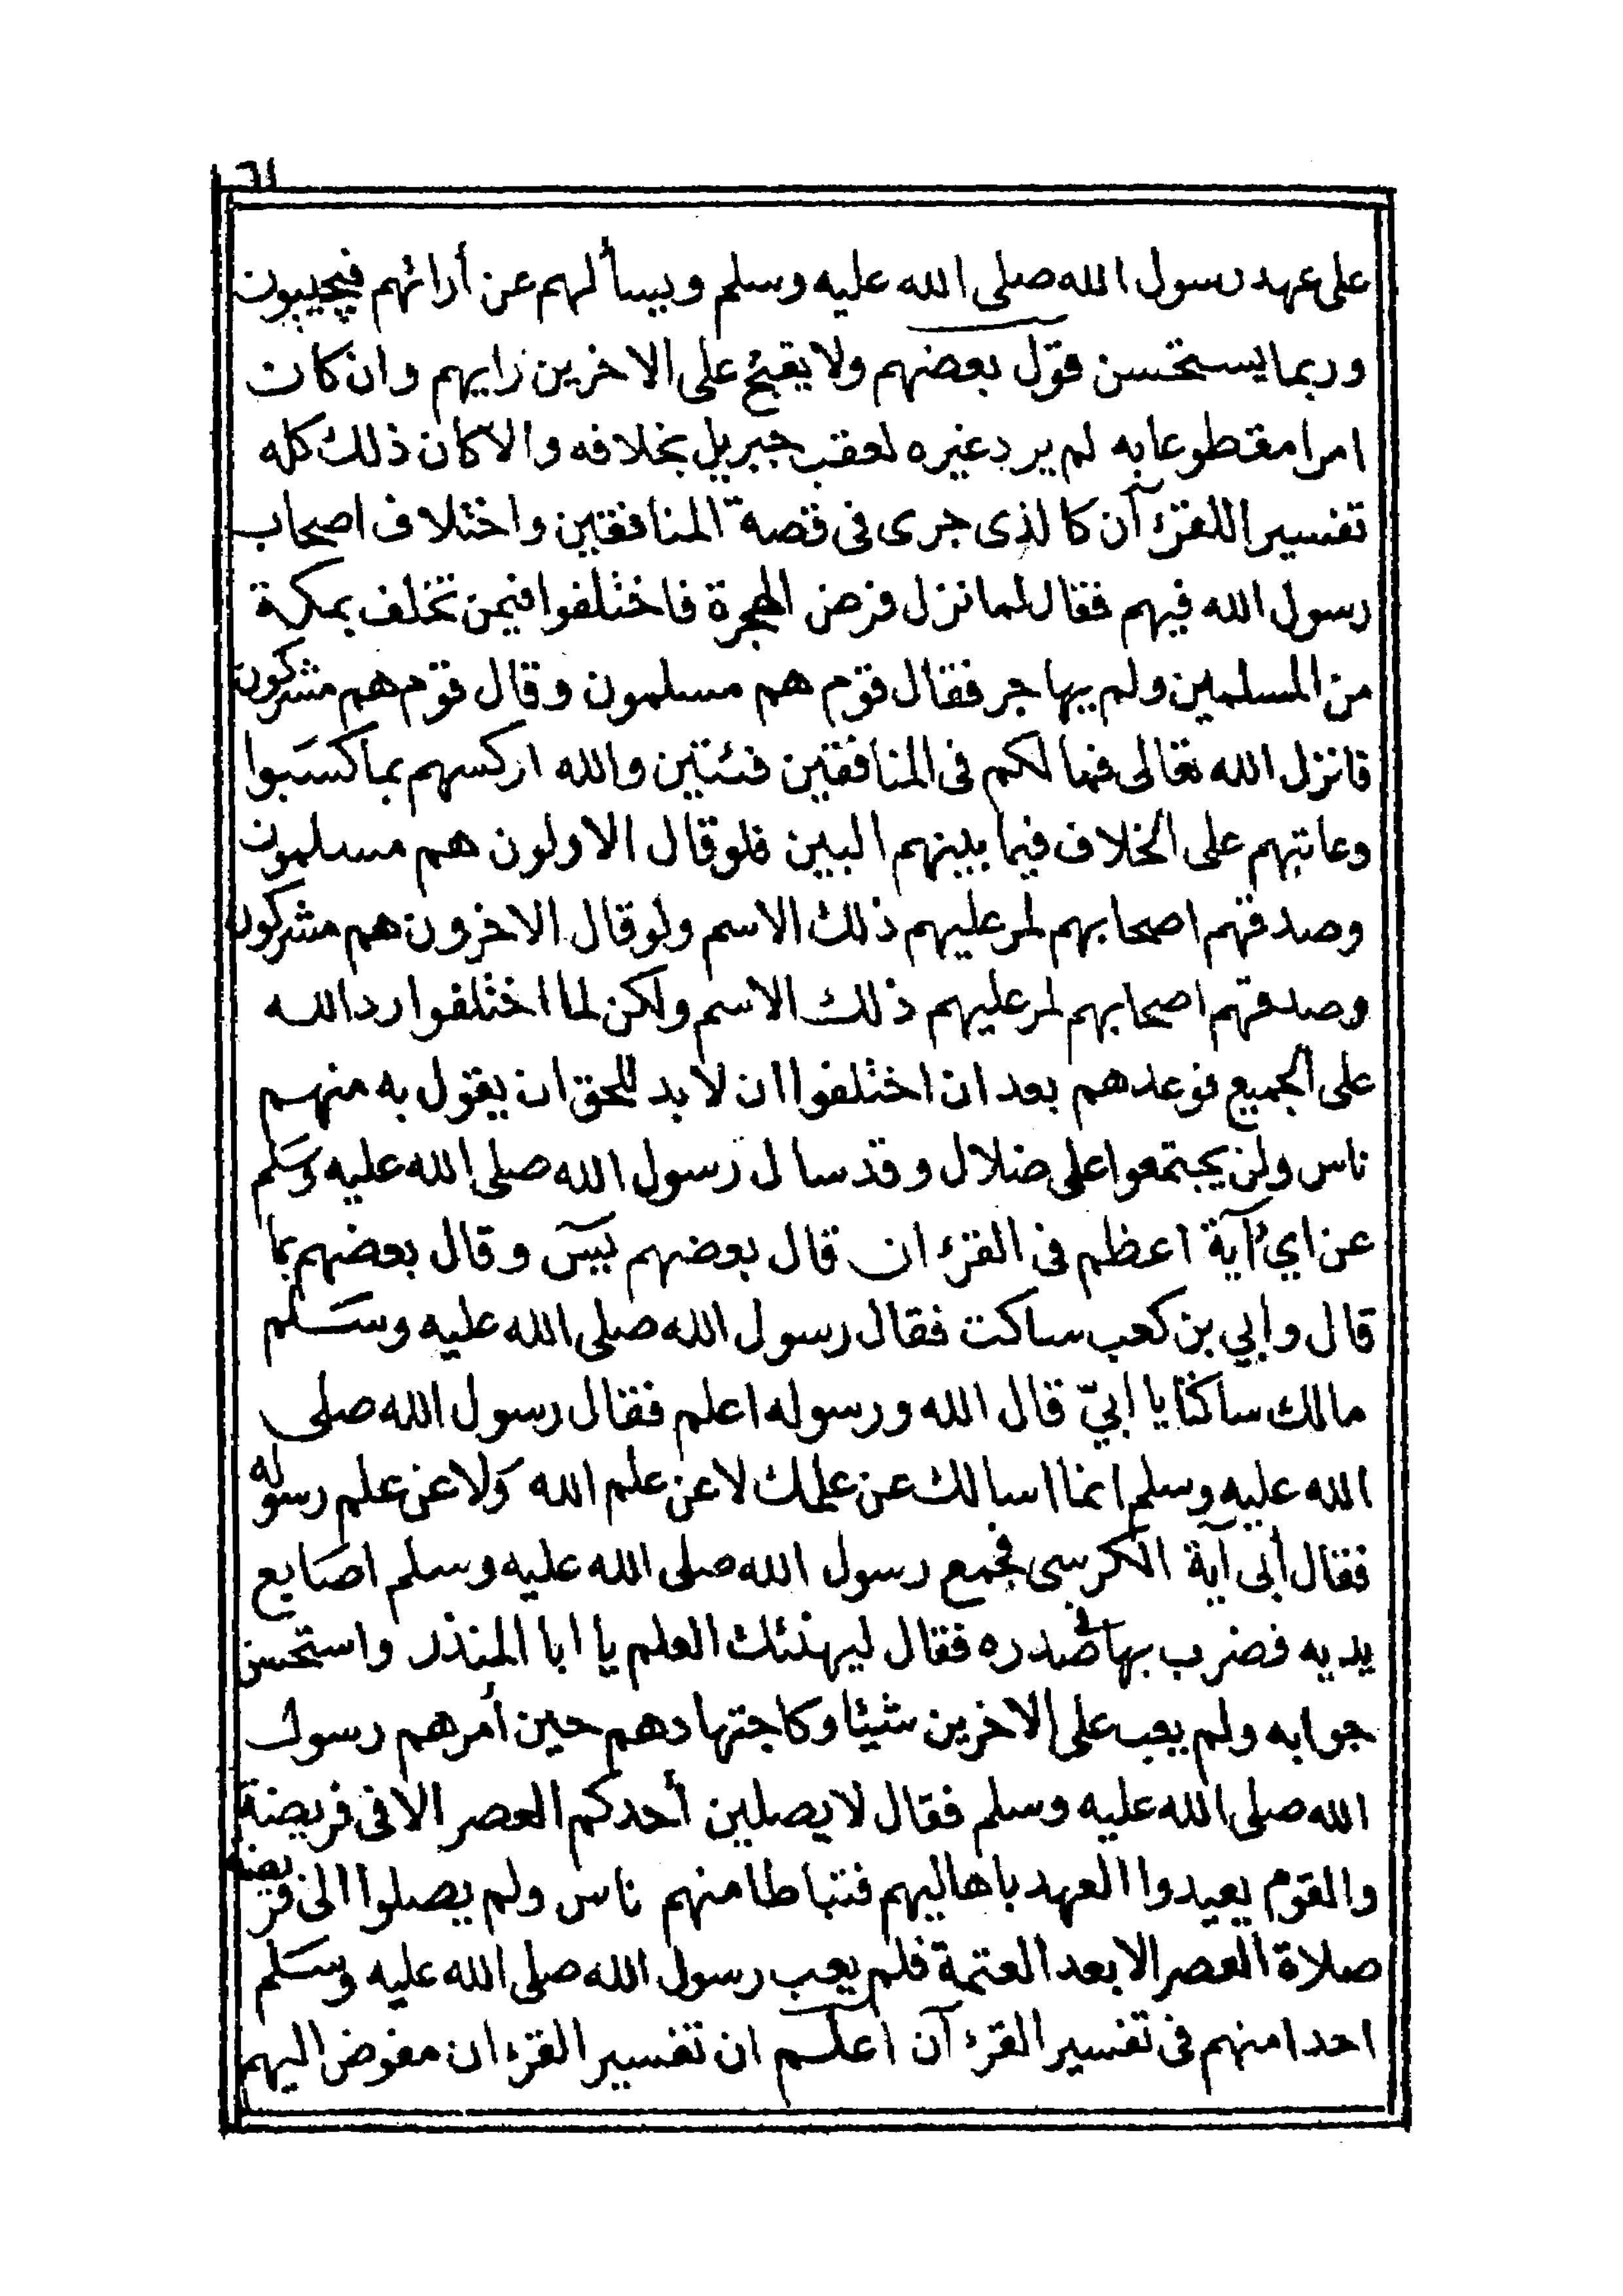 ٦١
على عهد رسول الله صلى الله عليه وسلم ويسألهم عن أرائهم فيجيبون
وربما يستحسن قول بعضهم ولا يقبح على الاخرين رايهم وان كان
امرا مقطوعا به لم يرد غيره لعقب جبريل بخلافه والا كان ذلك كله
تفسيرا للقرءآن كالذى جرى فى قصة المنافقين واختلاف اصحاب
رسول الله فيهم فقال لما نزل فرض الهجرة فاختلفوا فيمن تخلف بمكة
من المسلمين ولم يهاجر فقال قوم هم مسلمون وقال قوم هم مشركون
فانزل الله تعالى فما لكم فى المنافقين فئتين والله اركسهم بما كسبوا
وعاتبهم على الخلاف فيما بينهم البين فلو قال الاولون هم مسلمون
وصدقهم اصحابهم لمر عليهم ذلك الاسم ولو قال الاخرون هم مشركون
وصدقهم اصحابهم لمر عليهم ذلك الاسم ولكن لما اختلفوا رد الله
على الجميع فوعدهم بعد ان اختلفوا ان لا بد للحق ان يقول به منهم
ناس ولن يجتمعوا على ضلال وقد سال رسول الله صلى الله عليه وسلم
عن اي آية اعظم فى القرءان قال بعضهم يس وقال بعضهم بما
قال وابي بن كعب ساكت فقال رسول الله صلى الله عليه وسلم
مالك ساكتا يا ابيّ قال الله ورسوله اعلم فقال رسول الله صلى
الله عليه وسلم انما اسالك عن علمك لا عن علم الله ولا عن علم رسوله
فقال أبى آية الكرسى فجمع رسول الله صلى الله عليه وسلم اصابع
يديه فضرب بها فى صدره فقال ليهنئك العلم يا ابا المنذر واستحسن
جوابه ولم يعب على الاخرين شيئا وكاجتهادهم حين أمرهم رسول
الله صلى الله عليه وسلم فقال لا يصلين أحدكم العصر الا فى فريضة
والقوم يعيدوا العهد باهاليهم فتباطا منهم ناس ولم يصلوا الى فريضة
صلاة العصر الا بعد العتمة فلم يعب رسول الله صلى الله عليه وسلم
احدا منهم فى تفسير القرءآن اعلم ان تفسير القرءان مفوض اليهم